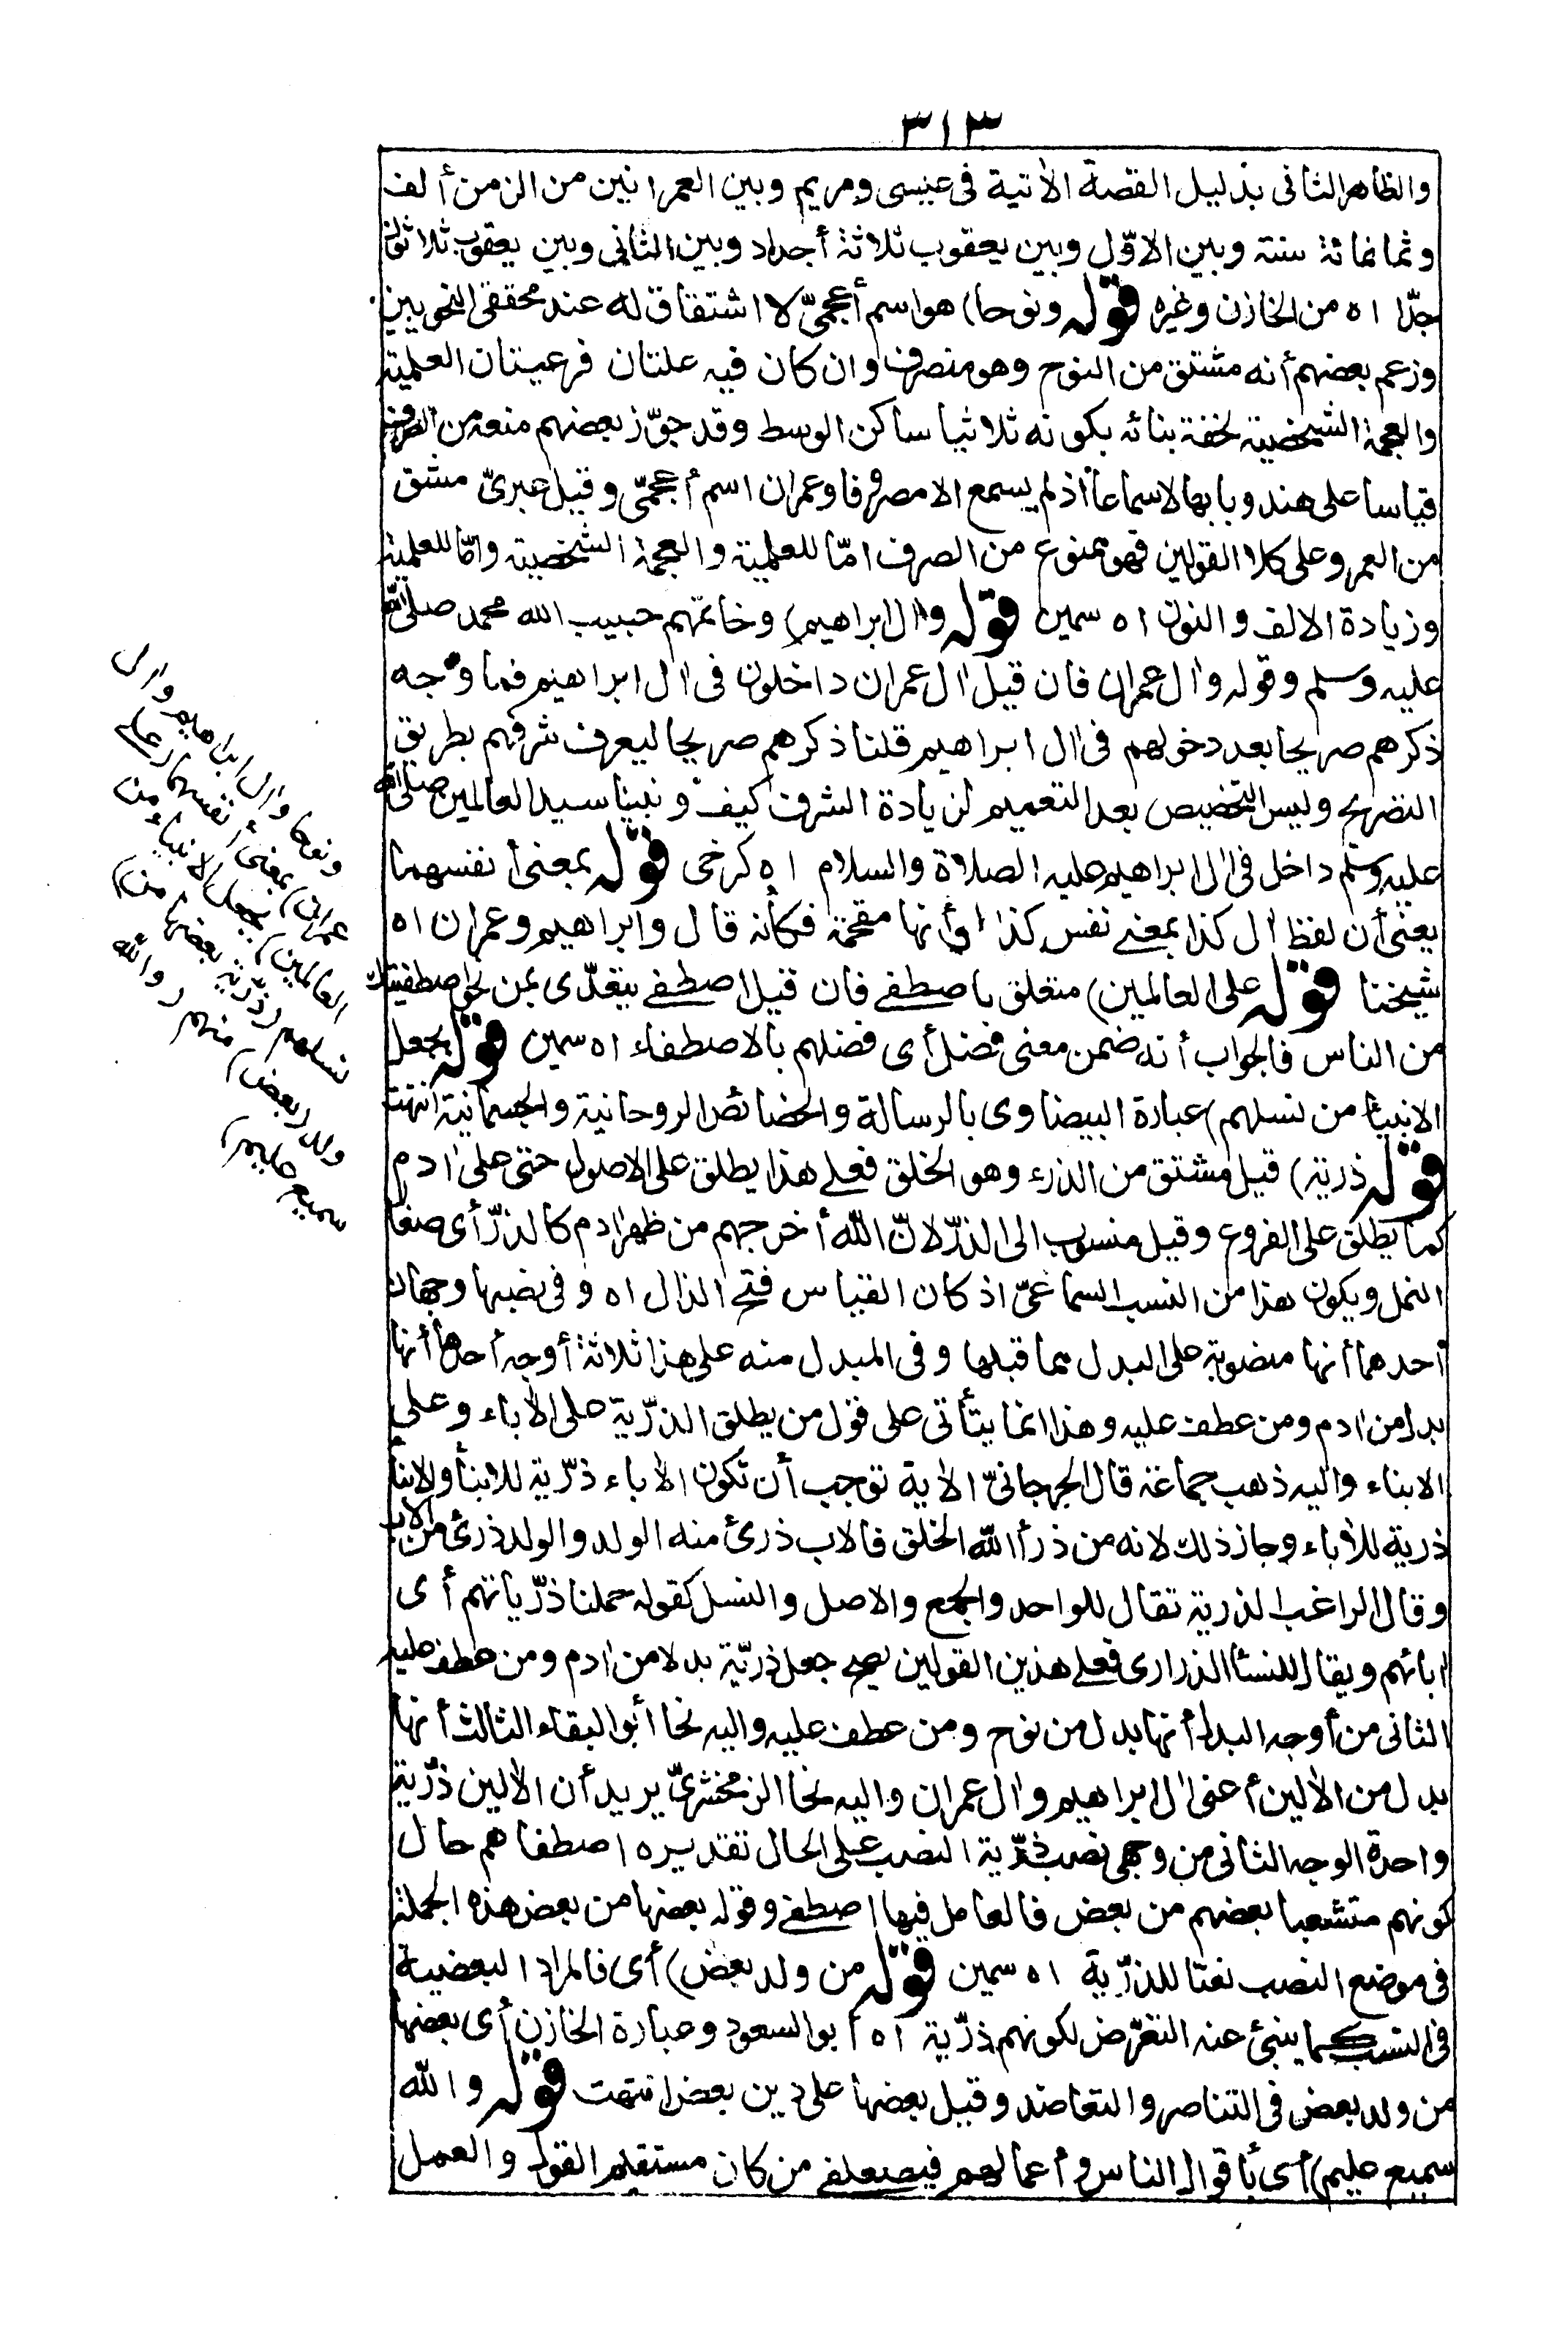 ٣١٣
والظاهر الثانى بدليل القصة الاٰتية فى عيسى ومريم وبين العمرانين من الزمن ألف
وثمانمائة سنة وبين الاوّل وبين يعقوب ثلاثة أجداد وبين الثانى وبين يعقوب ثلاثون
جدّا اه من الخازن وغيره قوله ونوحا) هو اسم أعجمىّ لا اشتقاق له عند محققى النحويين
وزعم بعضهم أنه مشتق من النوح وهو منصرف وان كان فيه علتان فرعيتان العلمية
والعجمة الشخصية لخفة بنائه بكونه ثلاثيا ساكن الوسط وقد جوّز بعضهم منعه من الصرف
قياسا على هند وبابها لاسماعا اذ لم يسمع الا مصروفا وعمران اسم أعجمىّ وقيل عبرىّ مشتق
من العمر وعلى كلا القولين فهو ممنوع من الصرف امّا للعلمية والعجمة الشخصية وامّا للعلمية
وزيادة الالف والنون اه سمين قوله واٰل ابراهيم) وخاتمهم حبيب الله محمد صلى الله
عليه وسلم وقوله واٰل عمران فان قيل اٰل عمران داخلون فى اٰل ابراهيم فما وجه
ذكرهم صريحا بعد دخولهم فى اٰل ابراهيم قلنا ذكرهم صريحا ليعرف شرفهم بطريق
التصريح وليس التخصيص بعد التعميم لزيادة الشرف كيف ونبينا سيد العالمين صلى الله
عليه وسلم داخل فى اٰل ابراهيم عليه الصلاة والسلام اه كرخى قوله بمعنى أنفسهما
يعنى أن لفظ اٰل كذا بمعنى نفس كذا أو أنها مقحمة فكأنه قال وابراهيم وعمران اه
شيخنا قوله على العالمين) متعلق باصطفى فان قيل اصطفى يتعدّى بمن نحو اصطفيتك
من الناس فالجواب أنه ضمن معنى فضل أى فضلهم بالاصطفاء اه سمين قوله بجعل
الانبياء من نسلهم) عبارة البيضاوى بالرسالة والخصائص الروحانية والجسمانية انتهت
قوله ذرية) قيل مشتق من الذرء وهو الخلق فعلى هذا يطلق على الاصول حتى على اٰدم
كما يطلق على الفروع وقيل منسوب الى الذرّ لانّ الله أخرجهم من ظهر اٰدم كالذرّ أى صغار
النمل ويكون هذا من النسب السماعىّ اذ كان القياس فتح الذال اه وفى نصبها وجهان
أحدهما أنها منصوبة على البدل مما قبلها وفى المبدل منه على هذا ثلاثة أوجه أحدها أنها
بدل من اٰدم ومن عطف عليه وهذا انما يتأتى على قول من يطلق الذرّية على الاٰباء وعلى
الابناء واليه ذهب جماعة قال الجرجانىّ الاٰية توجب أن تكون الاٰباء ذرّية للابناء والابناء
ذرية للاٰباء وجاز ذلك لانه من ذرأ الله الخلق فالاب ذرئ منه الولد والولد ذرئ من الاب
وقال الراغب الذرية تقال للواحد والجمع والاصل والنسل كقوله حملنا ذرّياتهم أى
اٰبائهم ويقال للنساء الذرارى فعلى هذين القولين يصح جعل ذرّية بدلا من اٰدم ومن عطف عليه
الثانى من أوجه البدل أنها بدل من نوح ومن عطف عليه واليه نحا أبو البقاء الثالث أنها
بدل من الاٰلين أعنى اٰل ابراهيم واٰل عمران واليه نحا الزمخشرىّ يريد أن الاٰلين ذرّية
واحدة الوجه الثانى من وجهى نصب ذرّية النصب على الحال تقديره اصطفاهم حال
كونهم متشعبا بعضهم من بعض فالعامل فيها اصطفى وقوله بعضها من بعض هذه الجملة
فى موضع النصب نعتا للذرّية اه سمين قوله من ولد بعض) أى فالمراد البعضية
فى النسب كما ينبئ عنه التعرّض لكونهم ذرّية اه أبو السعود وعبارة الخازن أى بعضها
من ولد بعض فى التناصر والتعاضد وقيل بعضها على دين بعض انتهت قوله والله
سميع عليم) أى بأقوال الناس وأعمالهم فيصطفى من كان مستقيم القول والعمل
ونوحا واٰل ابراهيم واٰل
عمران) بمعنى أنفسهما (على
العالمين) بجعل الانبياء من
نسلهم (ذرّية بعضها من)
ولد (بعض) منهم (والله
سميع عليم)